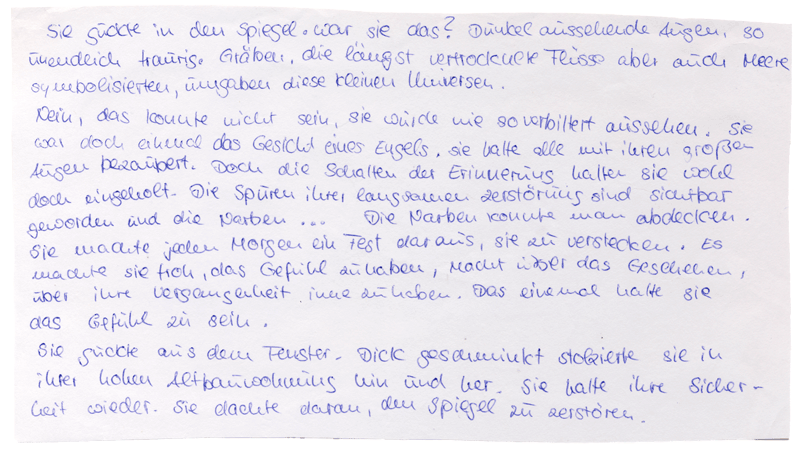 Sie guckte in den Spiegel. War sie das? Dunkel aussehende Augen, so
unendlich traurig. Gräben, die längst vertrocknete Flüsse aber auch Meere
symbolisierten, umgaben diese kleinen Universen.
Nein, das konnte nicht sein, sie würde nie so verbittert aussehen. Sie
war doch einmal das Gesicht eines Engels, sie hatte alle mit ihren großen
Augen bezaubert. Doch die Schatten der Erinnerung hatten sie wohl
doch eingeholt. Die Spuren ihrer langsamen Zerstörung sind sichtbar
geworden und die Narben ... Die Narben konnte man abdecken.
Sie machte jeden Morgen ein Fest daraus, sie zu verstecken. Es
machte sie froh, das Gefühl zu haben, Macht über das Geschehen,
über ihre Vergangenheit inne zu haben. Das einemal hatte sie
das Gefühl zu sein.
Sie guckte aus dem Fenster. Dick geschminkt stolzierte sie in
ihrer hohen Altbauwohnung hin und her. Sie hatte ihre Sicher-
heit wieder. Sie dachte daran, den Spiegel zu zerstören.